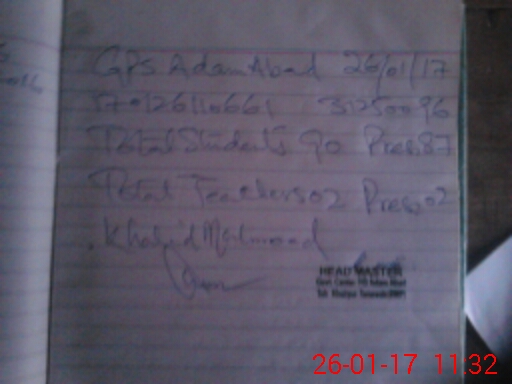 GPS Adam Abad 26/01/17
31250096
Total Students 90 Pres. 87
Total Teachers 02 Pres. 02
Khalid Mehmood
HEAD MASTER
26-01-17 11:32